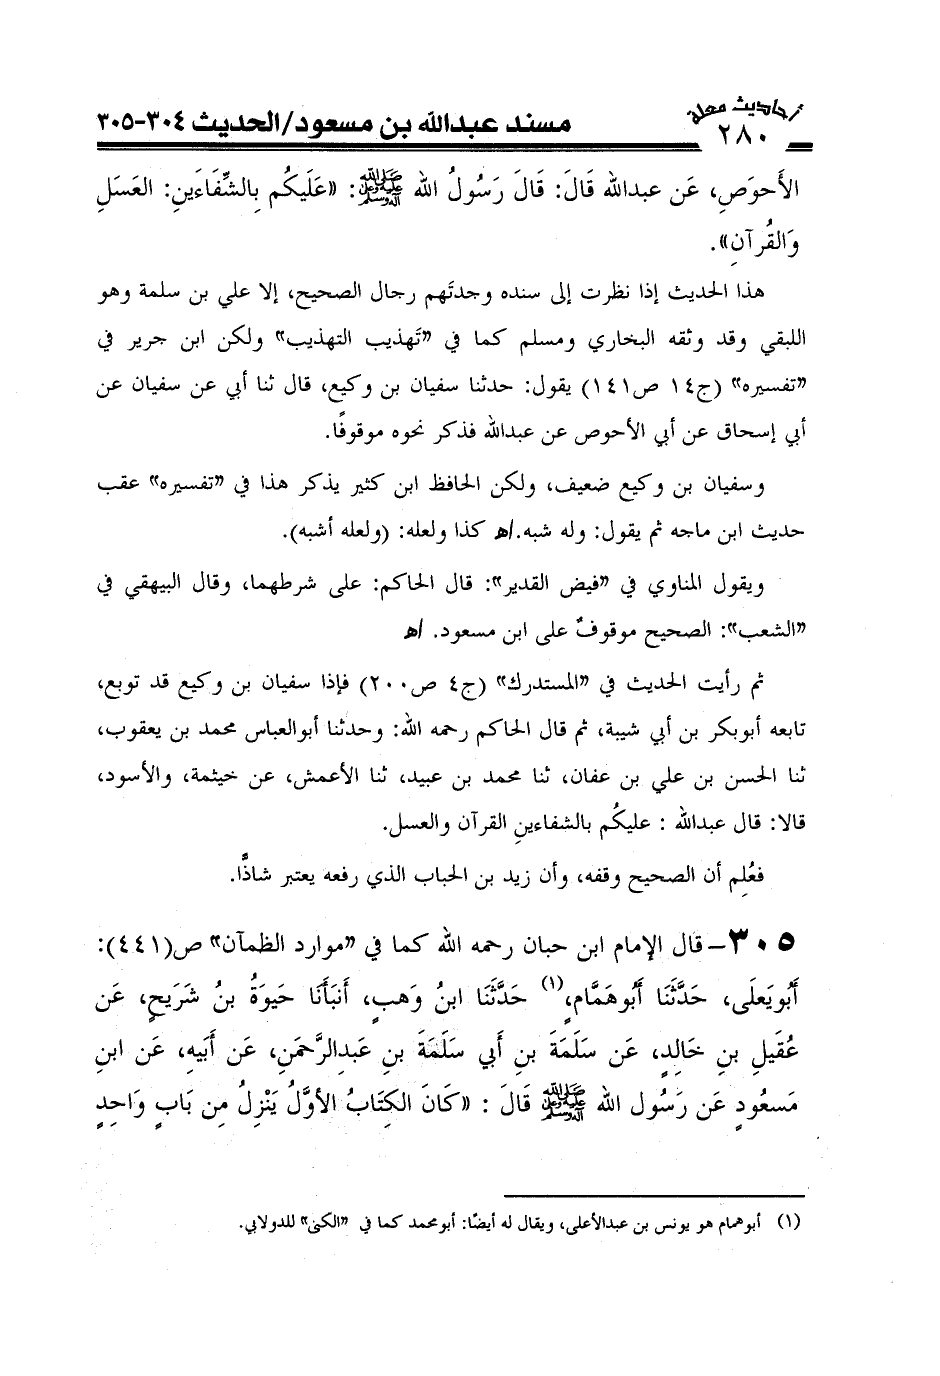 أحاديث معلة
٢٨٠
مسند عبدالله بن مسعود/الحديث ٣٠٤-٣٠٥
الأَحوَصِ، عَن عبدالله قَالَ: قَالَ رَسُولُ الله ﷺ: «عَلَيكُم بِالشِّفَاءَينِ: العَسَلِ
وَالقُرآنِ».
هذا الحديث إذا نظرت إلى سنده وجدتَهم رجال الصحيح، إلا علي بن سلمة وهو
اللبقي وقد وثقه البخاري ومسلم كما في «تَهذيب التهذيب» ولكن ابن جرير في
«تفسيره» (ج١٤ ص١٤١) يقول: حدثنا سفيان بن وكيع، قال ثنا أبي عن سفيان عن
أبي إسحاق عن أبي الأحوص عن عبدالله فذكر نحوه موقوفًا.
وسفيان بن وكيع ضعيف، ولكن الحافظ ابن كثير يذكر هذا في «تفسيره» عقب
حديث ابن ماجه ثم يقول: وله شبه.اﻫ كذا ولعله: (ولعله أشبه).
ويقول المناوي في «فيض القدير»: قال الحاكم: على شرطهما، وقال البيهقي في
«الشعب»: الصحيح موقوفٌ على ابن مسعود. اﻫ
ثم رأيت الحديث في «المستدرك» (ج٤ ص٢٠٠) فإذا سفيان بن وكيع قد توبع،
تابعه أبوبكر بن أبي شيبة، ثم قال الحاكم رحمه الله: وحدثنا أبوالعباس محمد بن يعقوب،
ثنا الحسن بن علي بن عفان، ثنا محمد بن عبيد، ثنا الأعمش، عن خيثمة، والأسود،
قالا: قال عبدالله : عليكُم بالشفاءينِ القرآن والعسل.
فعُلِم أن الصحيح وقفه، وأن زيد بن الحباب الذي رفعه يعتبر شاذًّا.
٣٠٥- قال الإمام ابن حبان رحمه الله كما في «موارد الظمآن» ص(٤٤١):
أَبُويَعلَى، حَدَّثَنَا أَبُوهَمَّامٍ،(١) حَدَّثَنَا ابنُ وَهبٍ، أَنبَأَنَا حَيوَةُ بنُ شَرَيحٍ، عَن
عُقَيلِ بنِ خَالِدٍ، عَن سَلَمَةَ بنِ أبي سَلَمَةَ بنِ عَبدِالرَّحمَنِ، عَن أَبيهِ، عَن ابنِ
مَسعُودٍ عَن رَسُول الله ﷺ قَالَ : «كَانَ الكِتَابُ الأوَّلُ يَنْزِلُ مِن بَابٍ وَاحِدٍ
(١) أبوهمام هو يونس بن عبدالأعلى، ويقال له أيضًا: أبومحمد كما في «الكنى» للدولابي.